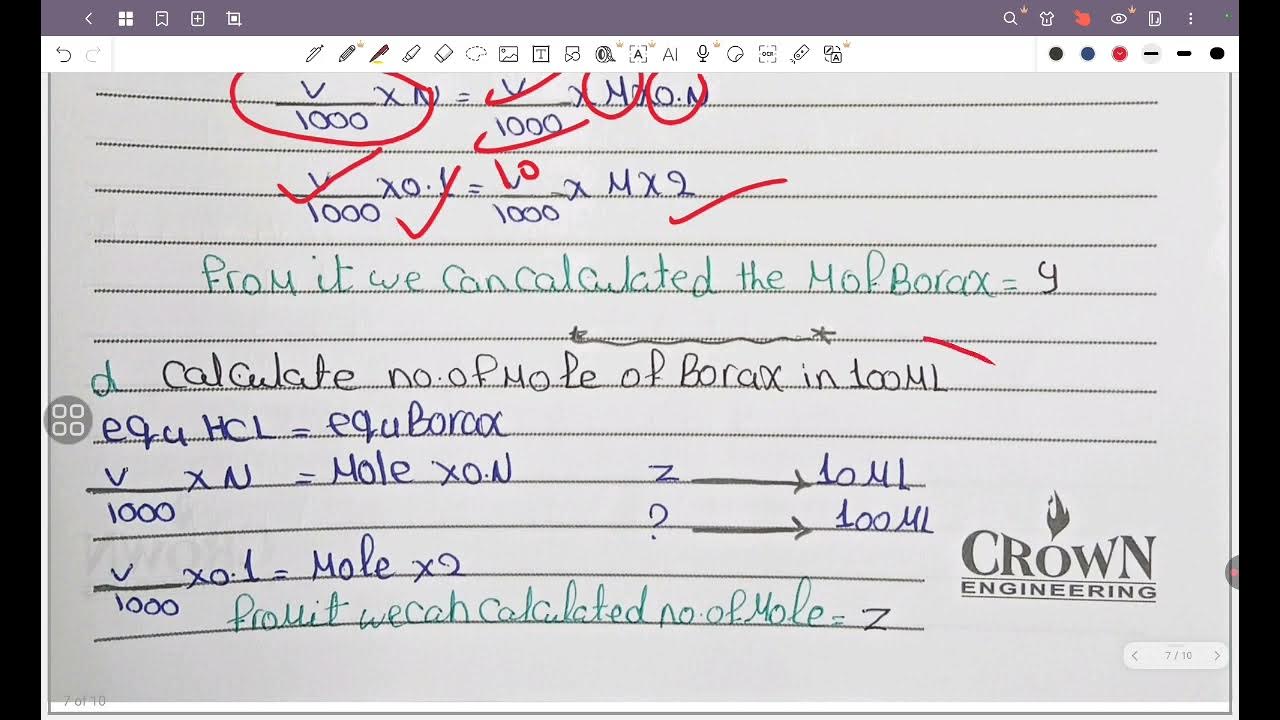 V/1000 x N = V/1000 x M x O.N
V/1000 x 0.1 = 10/1000 x M x 2
from it we can calculated the M of Borax = y
d calculate no. of Mole of Borax in 100ML
equ HCL = equ Borax
V/1000 x N = Mole x O.N
Z → 10ML
? → 100ML
V/1000 x 0.1 = Mole x 2
from it we can calculated no. of Mole = Z
CROWN
ENGINEERING
7 / 10
7 of 10